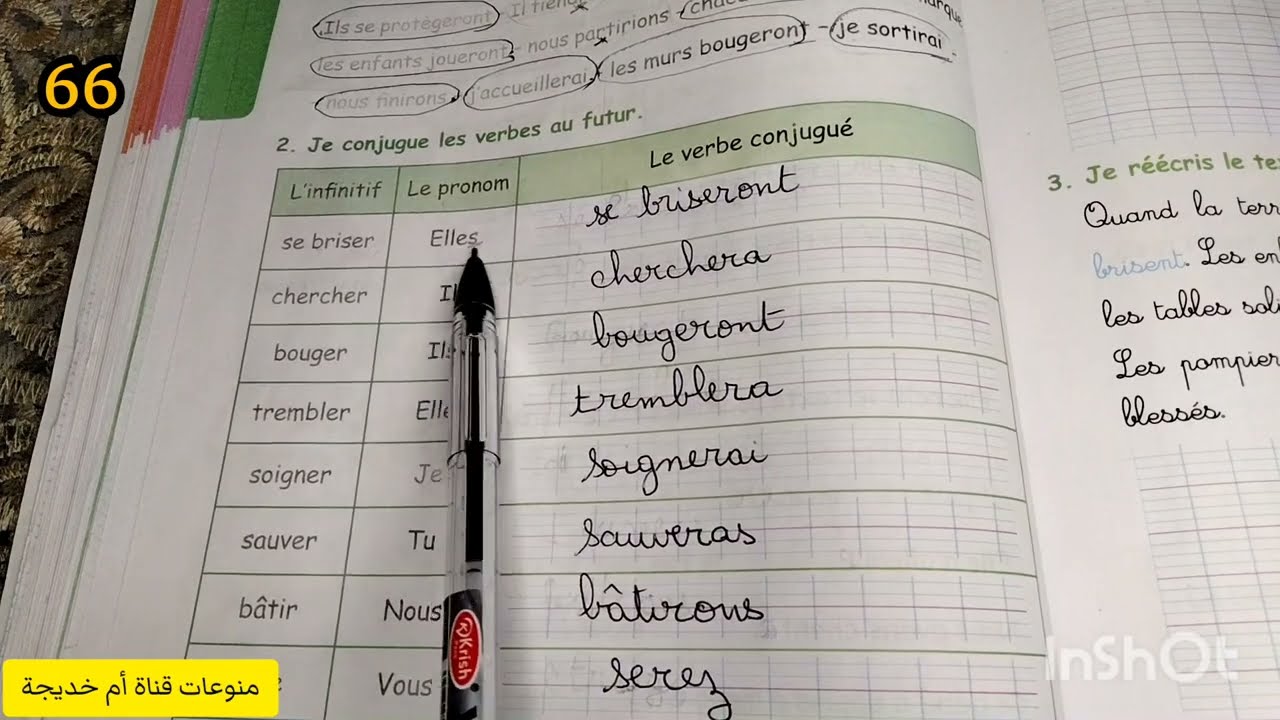 66
Ils se protègeront Il tient
les enfants joueront - nous partirions
nous finirons j'accueillerai les murs bougeront - je sortirai
2. Je conjugue les verbes au futur.
L'infinitif Le pronom Le verbe conjugué
se briser Elles se briseront
chercher cherchera
bouger bougeront
trembler tremblera
soigner Je soignerai
sauver Tu sauveras
bâtir Nous bâtirons
Vous serez
3. Je réécris le te
Quand la terr
brisent. Les en
les tables soli
Les pompier
blessés.
Krish
منوعات قناة أم خديجة
InShOt